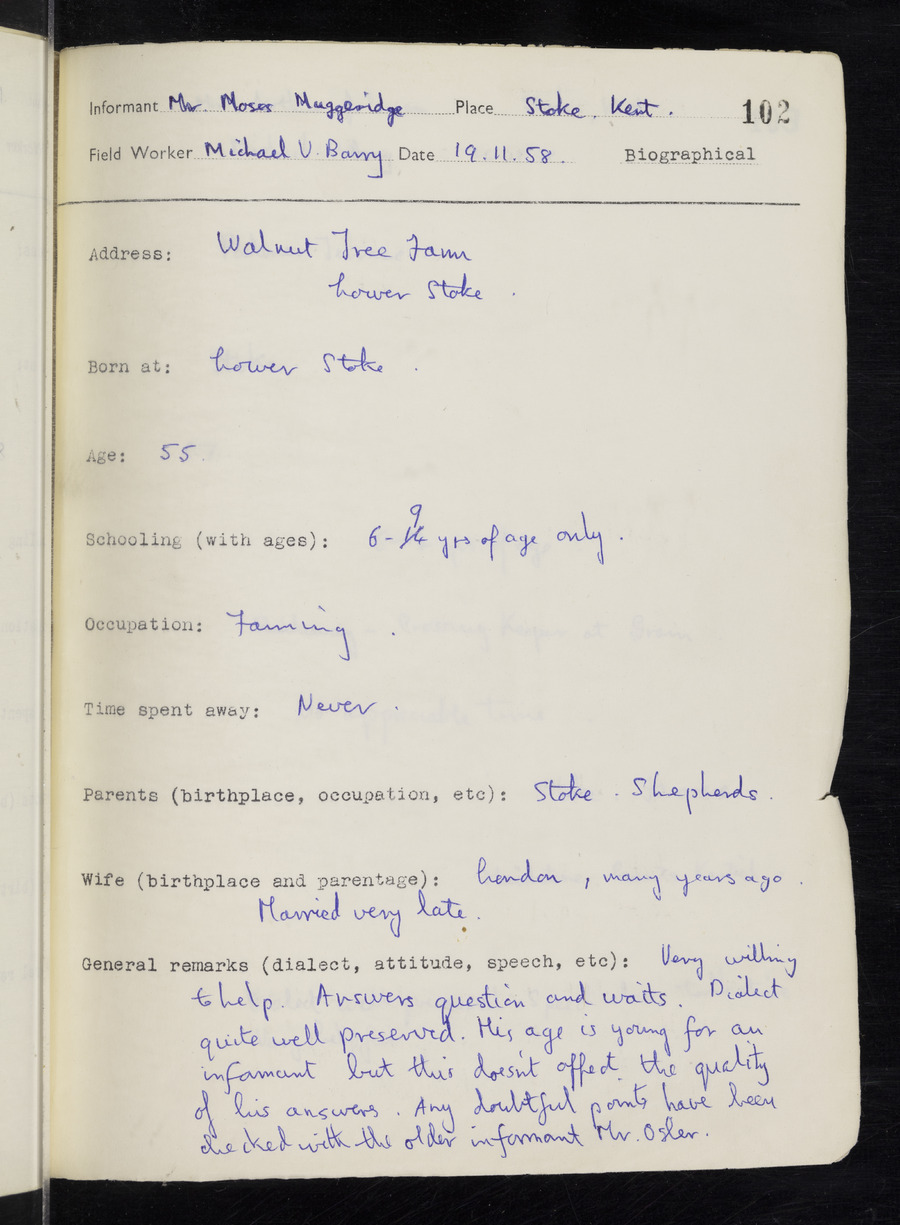 Informant Mr. Moses Muggeridge Place Stoke. Kent. 102
Field Worker Michael V. Barry Date 19.11.58. Biographical
Address: Walnut Tree Farm
Lower Stoke.
Born at: Lower Stoke.
Age: 55.
Schooling (with ages): 6-14 9 yrs of age only.
Occupation: Farming.
Time spent away: Never.
Parents (birthplace, occupation, etc): Stoke. Shepherds.
Wife (birthplace and parentage): London, many years ago.
Married very late.
General remarks (dialect, attitude, speech, etc): Very willing
to help. Answers question and waits. Dialect
quite well preserved. His age is young for an
informant but this doesn't affect the quality
of his answers. Any doubtful points have been
checked with the older informant Mr. Osler.